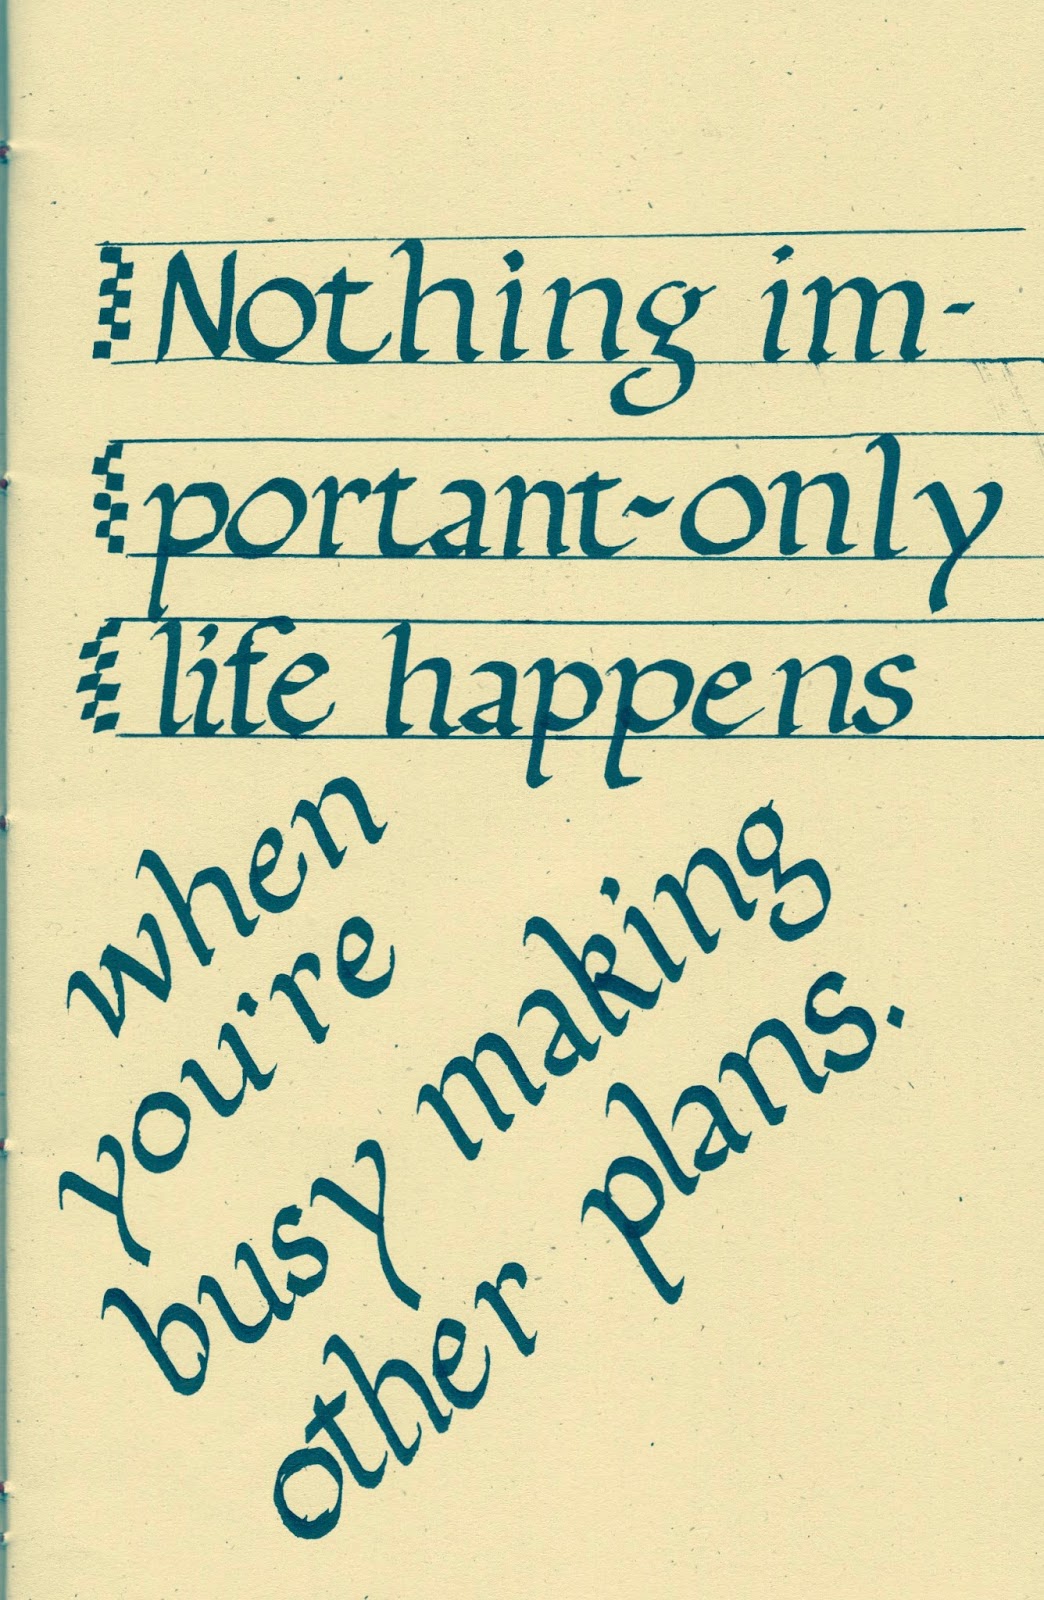 Nothing im-
portant-only
life happens
when
you're
busy making
other plans.